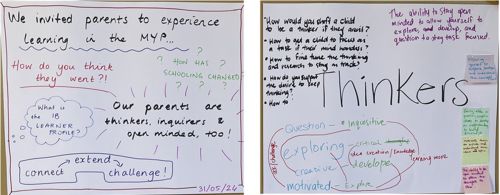 We invited parents to experience
learning in the MYP...
How do you think
they went?!
? HOW HAS ?
SCHOOLING CHANGED?
What is
the IB
LEARNER
PROFILE?
Our parents are
thinkers, inquirers &
open minded, too!
connect extend challenge!
31/05/24
How would you
a child
to be a thinker if they
• How to get a child to focus on
a task if their mind wanders?
• How to fine tune the thinking
and research to stay on track?
• How do you support
the desire to keep
thinking?
• How to
The ability to stay open
minded to allow yourself to
explore, and develop, and
question to stay task focused.
Thinkers
Question - inquisitive
exploring
critical
idea creation / knowledge
creative
develop
learning more
motivated - Explore